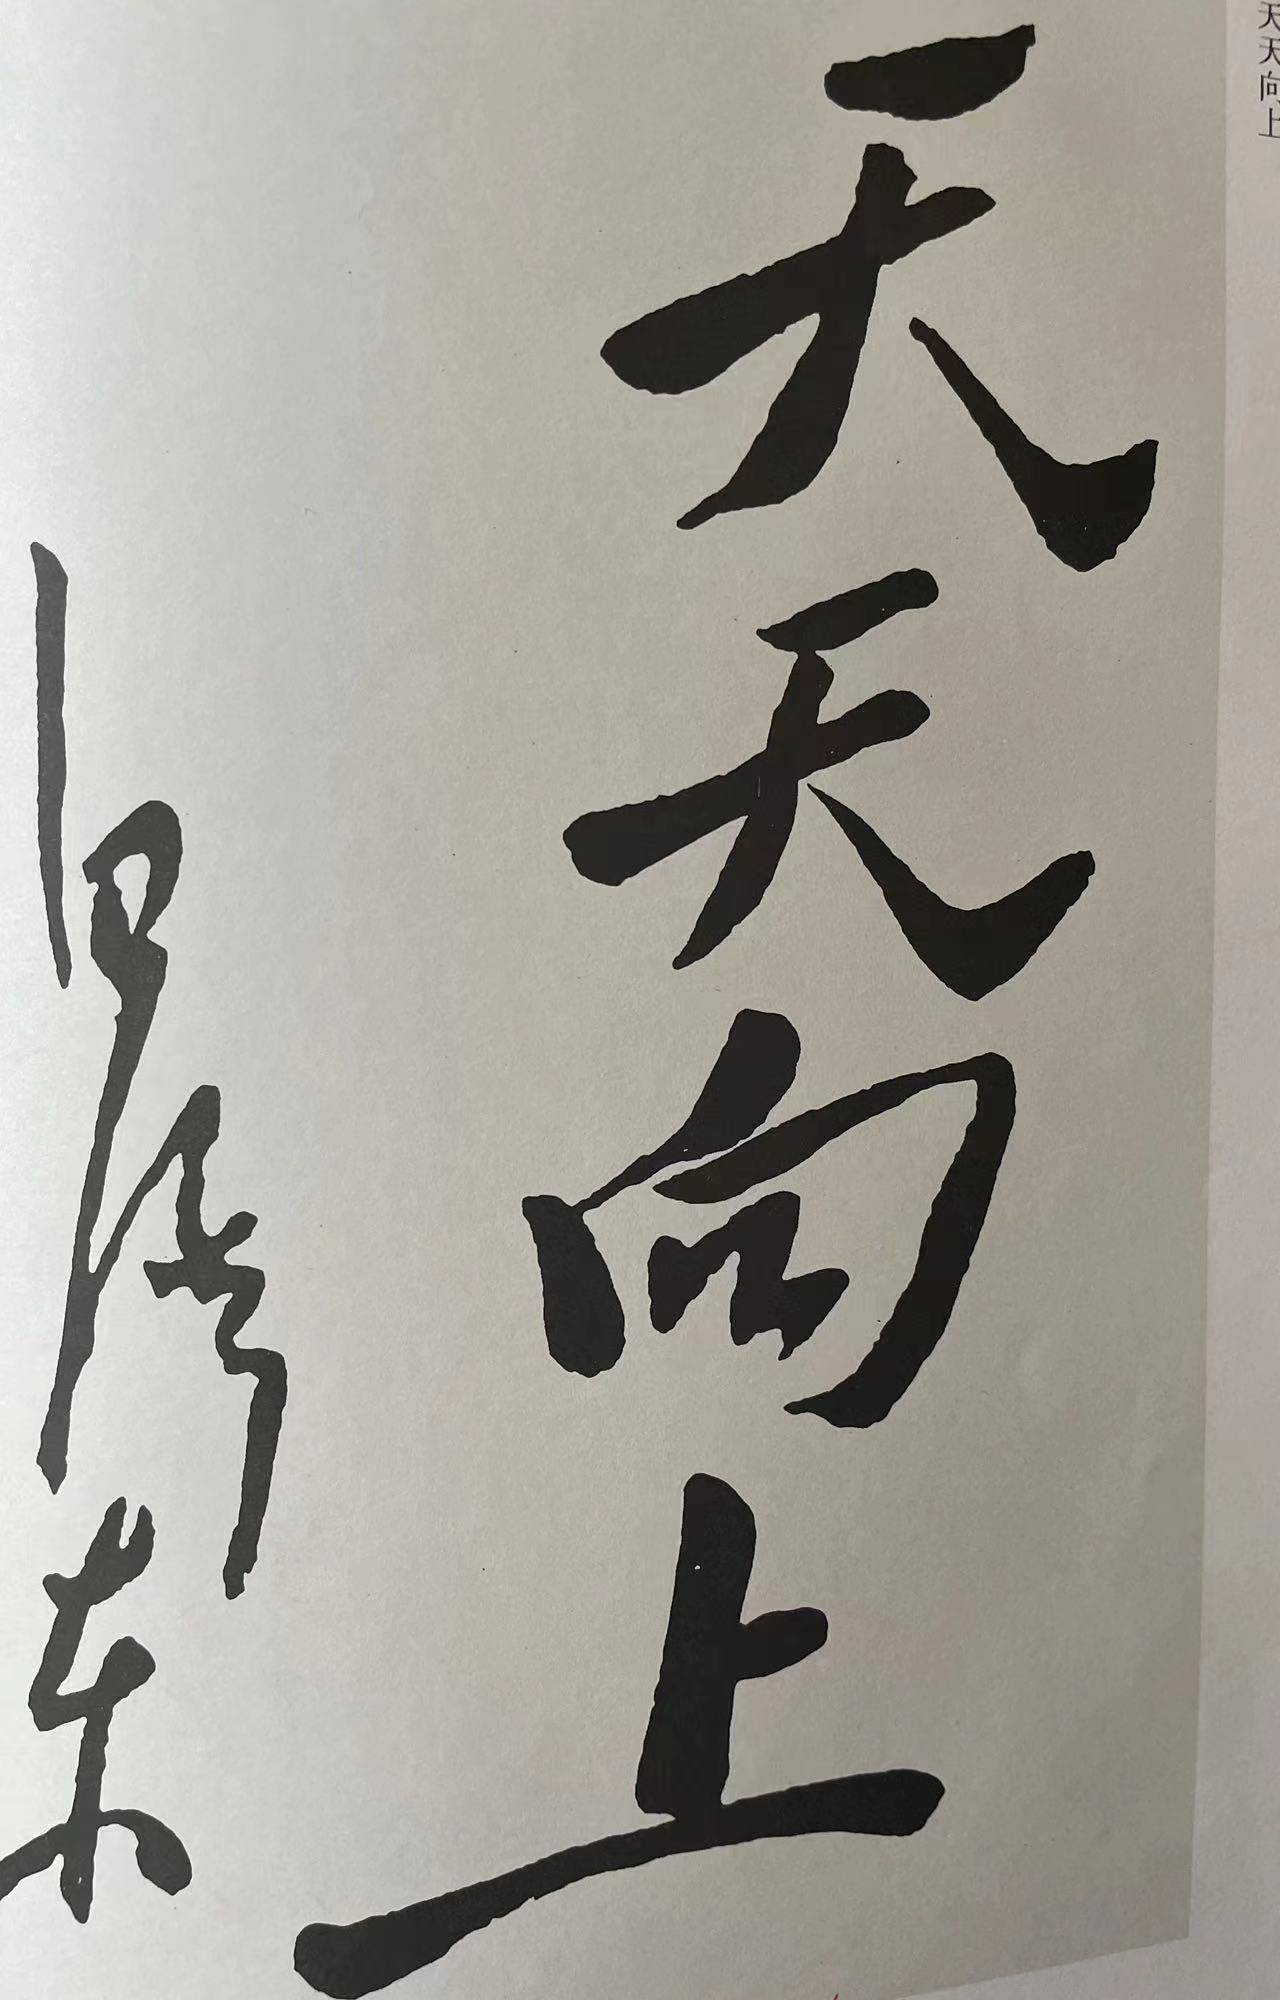 天天向上
天天向上
毛泽东